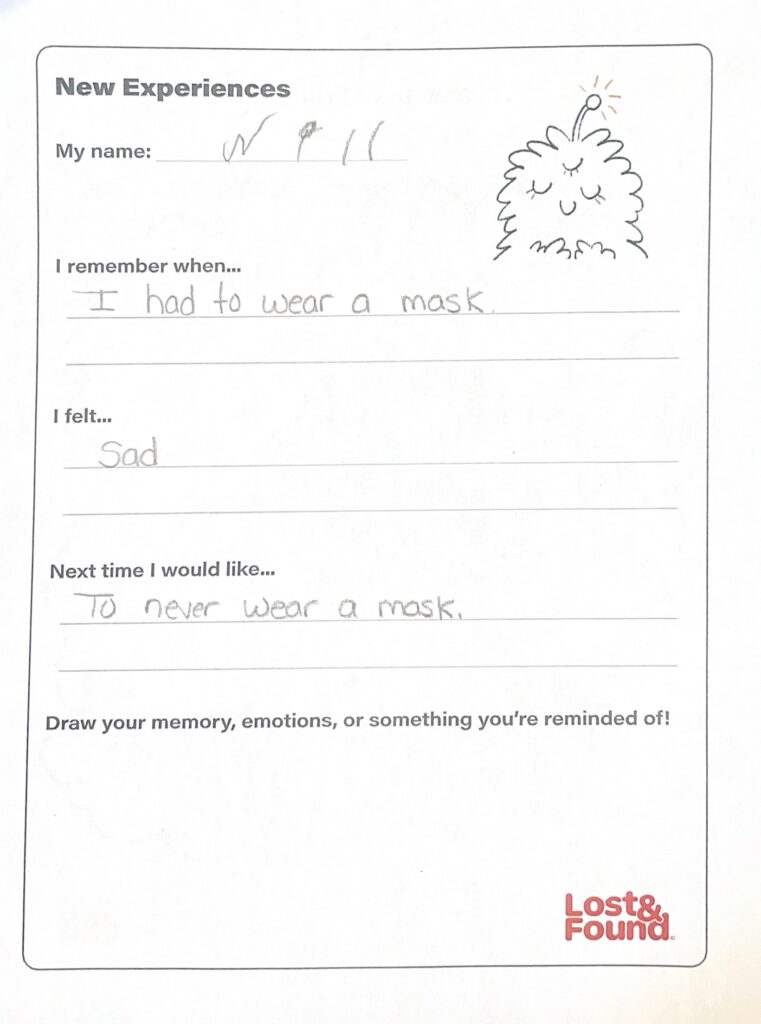 New Experiences
My name: Will
I remember when...
I had to wear a mask.
I felt...
Sad
Next time I would like...
To never wear a mask.
Draw your memory, emotions, or something you're reminded of!
Lost&
Found